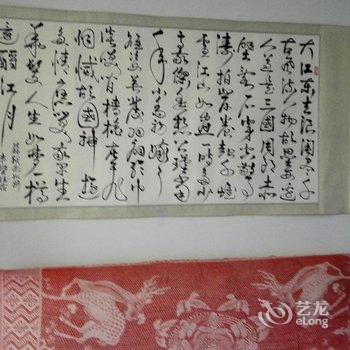 大江东去浪淘尽千
古风流人物故垒西边
人道是三國周郎赤
壁乱石穿空惊
涛拍岸卷起千堆
雪江山如画一时多少
豪杰遥想公瑾当
年小乔初嫁了
雄姿英发羽扇纶巾
谈笑间樯橹灰飞
烟灭故國神游
多情应笑我早生
华发人生如梦一樽
还酹江月
艺龙
eLong